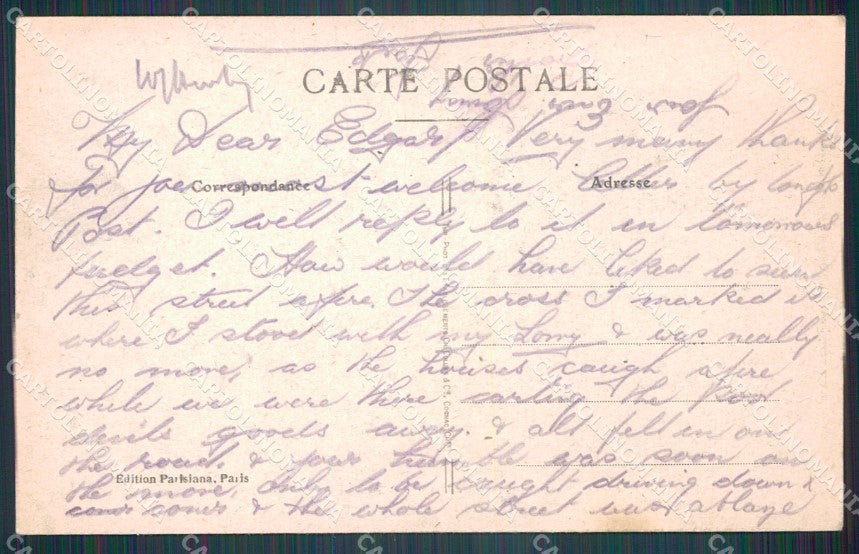 CARTE POSTALE
My Dear Edgar, Very many thanks
for your most welcome letter by tonights
Correspondance
Adresse
Post. I will reply to it in tomorrows
budget. How would have liked to seen
this street afire. The cross I marked is
where I stood with my Lorry & was nearly
no more, as the houses caugh afire
while we were there carting the poor
devils goods away. & all fell in on
the road. & your humble was soon on
Edition Parisiana, Paris
the move, only to be caught driving down &
corner & the whole street was ablaze
CARTOLINOMANIA